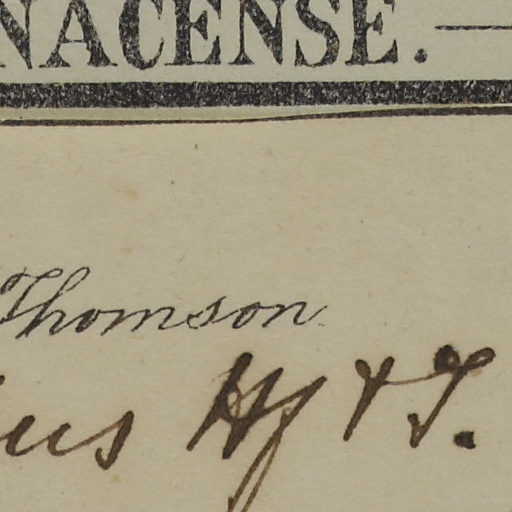 NACENSE.
Thomson
us Hf & T.